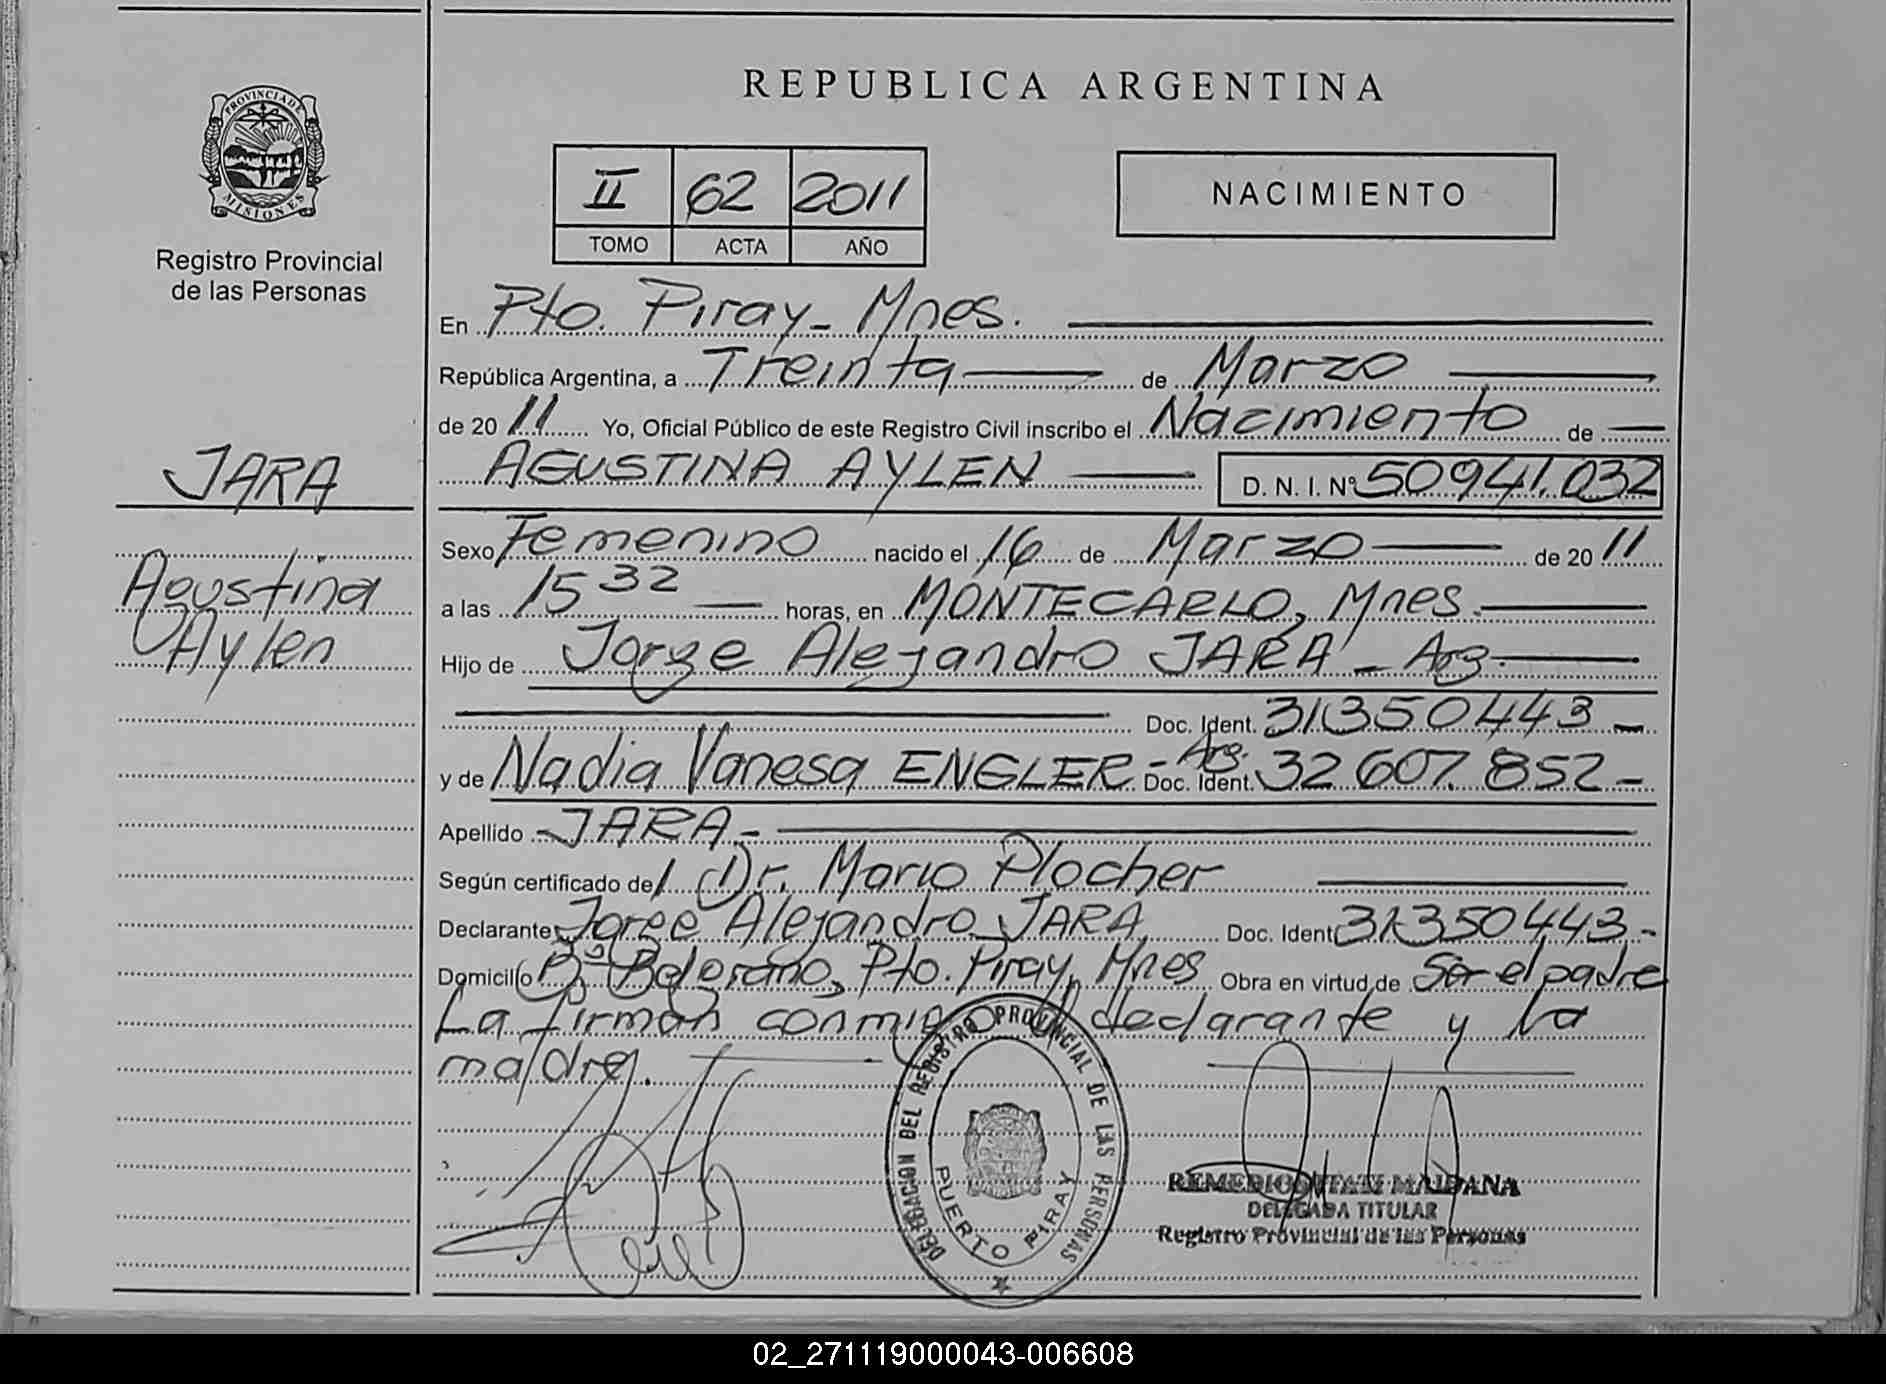 REPUBLICA ARGENTINA
PROVINCIA DE MISIONES
Registro Provincial
de las Personas
II 62 2011
TOMO ACTA AÑO
NACIMIENTO
En Pto. Piray - Mnes.
República Argentina, a Treinta de Marzo
de 20 11 Yo, Oficial Público de este Registro Civil inscribo el Nacimiento de
AGUSTINA AYLEN D. N. I. Nº 50941.032
JARA
Agustina
Aylen
Sexo Femenino nacido el 16 de Marzo de 20 11
a las 15 32 horas, en MONTECARLO, Mnes.
Hijo de Jorge Alejandro JARA - Arg.
Doc. Ident. 31350443 -
y de Nadia Vanesa ENGLER - Arg. Doc. Ident. 32.607.852 -
Apellido - JARA -
Según certificado del Dr. Mario Plocher
Declarante Jorge Alejandro JARA Doc. Ident 31350443 -
Domicilio Bº Belgrano, Pto. Piray, Mnes Obra en virtud de Ser el padre
La firman conmigo el declarante y la
madre.
DELEGACION DEL REGISTRO PROVINCIAL DE LAS PERSONAS
PUERTO PIRAY
REMEDIOS ITATI MAIDANA
DELEGADA TITULAR
Registro Provincial de las Personas
02_271119000043-006608